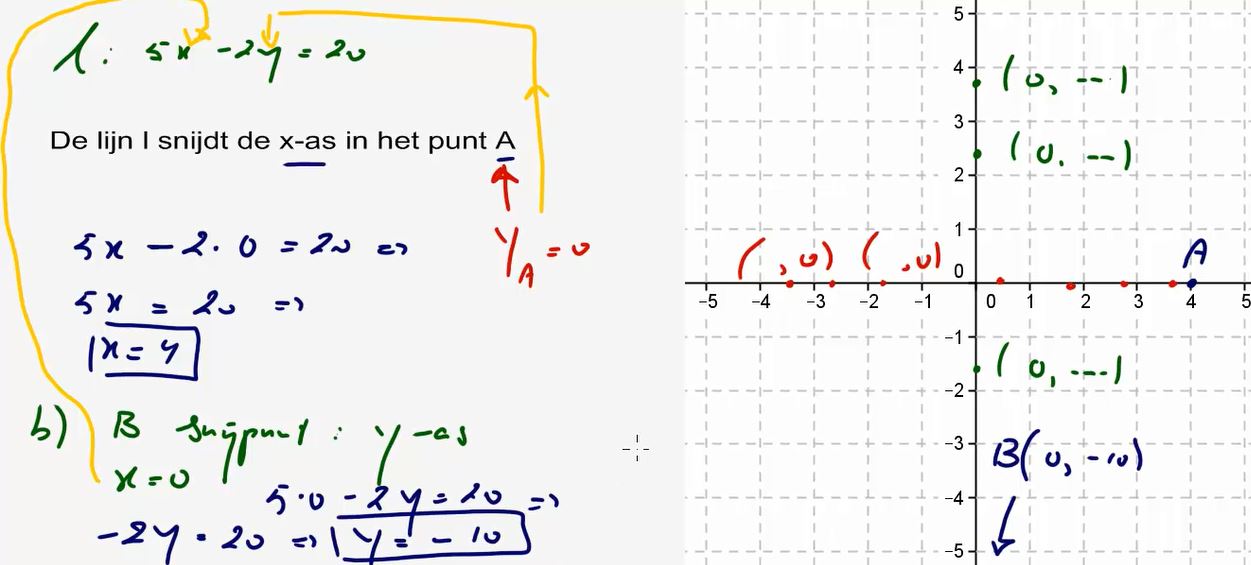 l: 5x - 2y = 20
De lijn l snijdt de x-as in het punt A
5x - 2 · 0 = 20 =>
y_A = 0
5x = 20 =>
x = 4
b) B snijpunt : y-as
x = 0
5·0 - 2y = 20 =>
-2y = 20 => y = -10
5
4
(0, ---)
3
(0, --)
2
1
( ,0) ( ,0)
0
A
-5 -4 -3 -2 -1 0 1 2 3 4 5
-1
(0, ---)
-2
-3
B(0, -10)
-4
-5